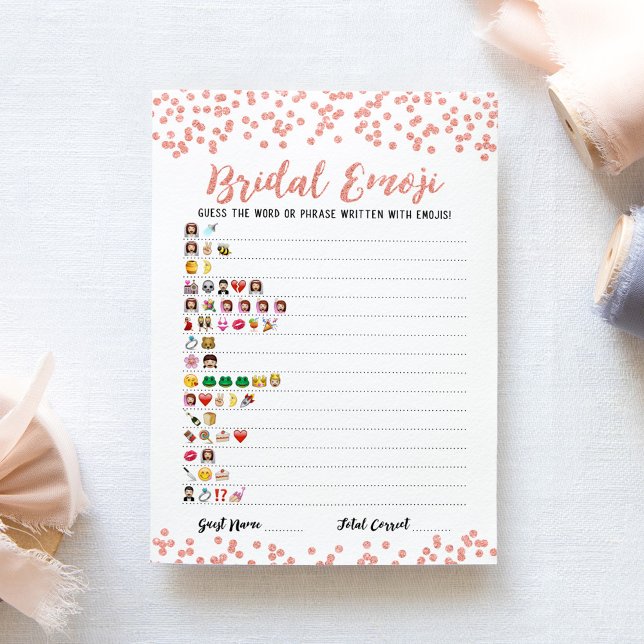 Bridal Emoji
GUESS THE WORD OR PHRASE WRITTEN WITH EMOJIS!
Guest Name
Total Correct